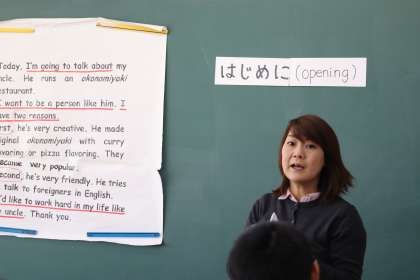 Today, I'm going to talk about my
uncle. He runs an okonomiyaki
restaurant.
I want to be a person like him. I
have two reasons.
First, he's very creative. He made
original okonomiyaki with curry
flavoring or pizza flavoring. They
became very popular.
Second, he's very friendly. He tries
to talk to foreigners in English.
I'd like to work hard in my life like
my uncle. Thank you.
はじめに (opening)